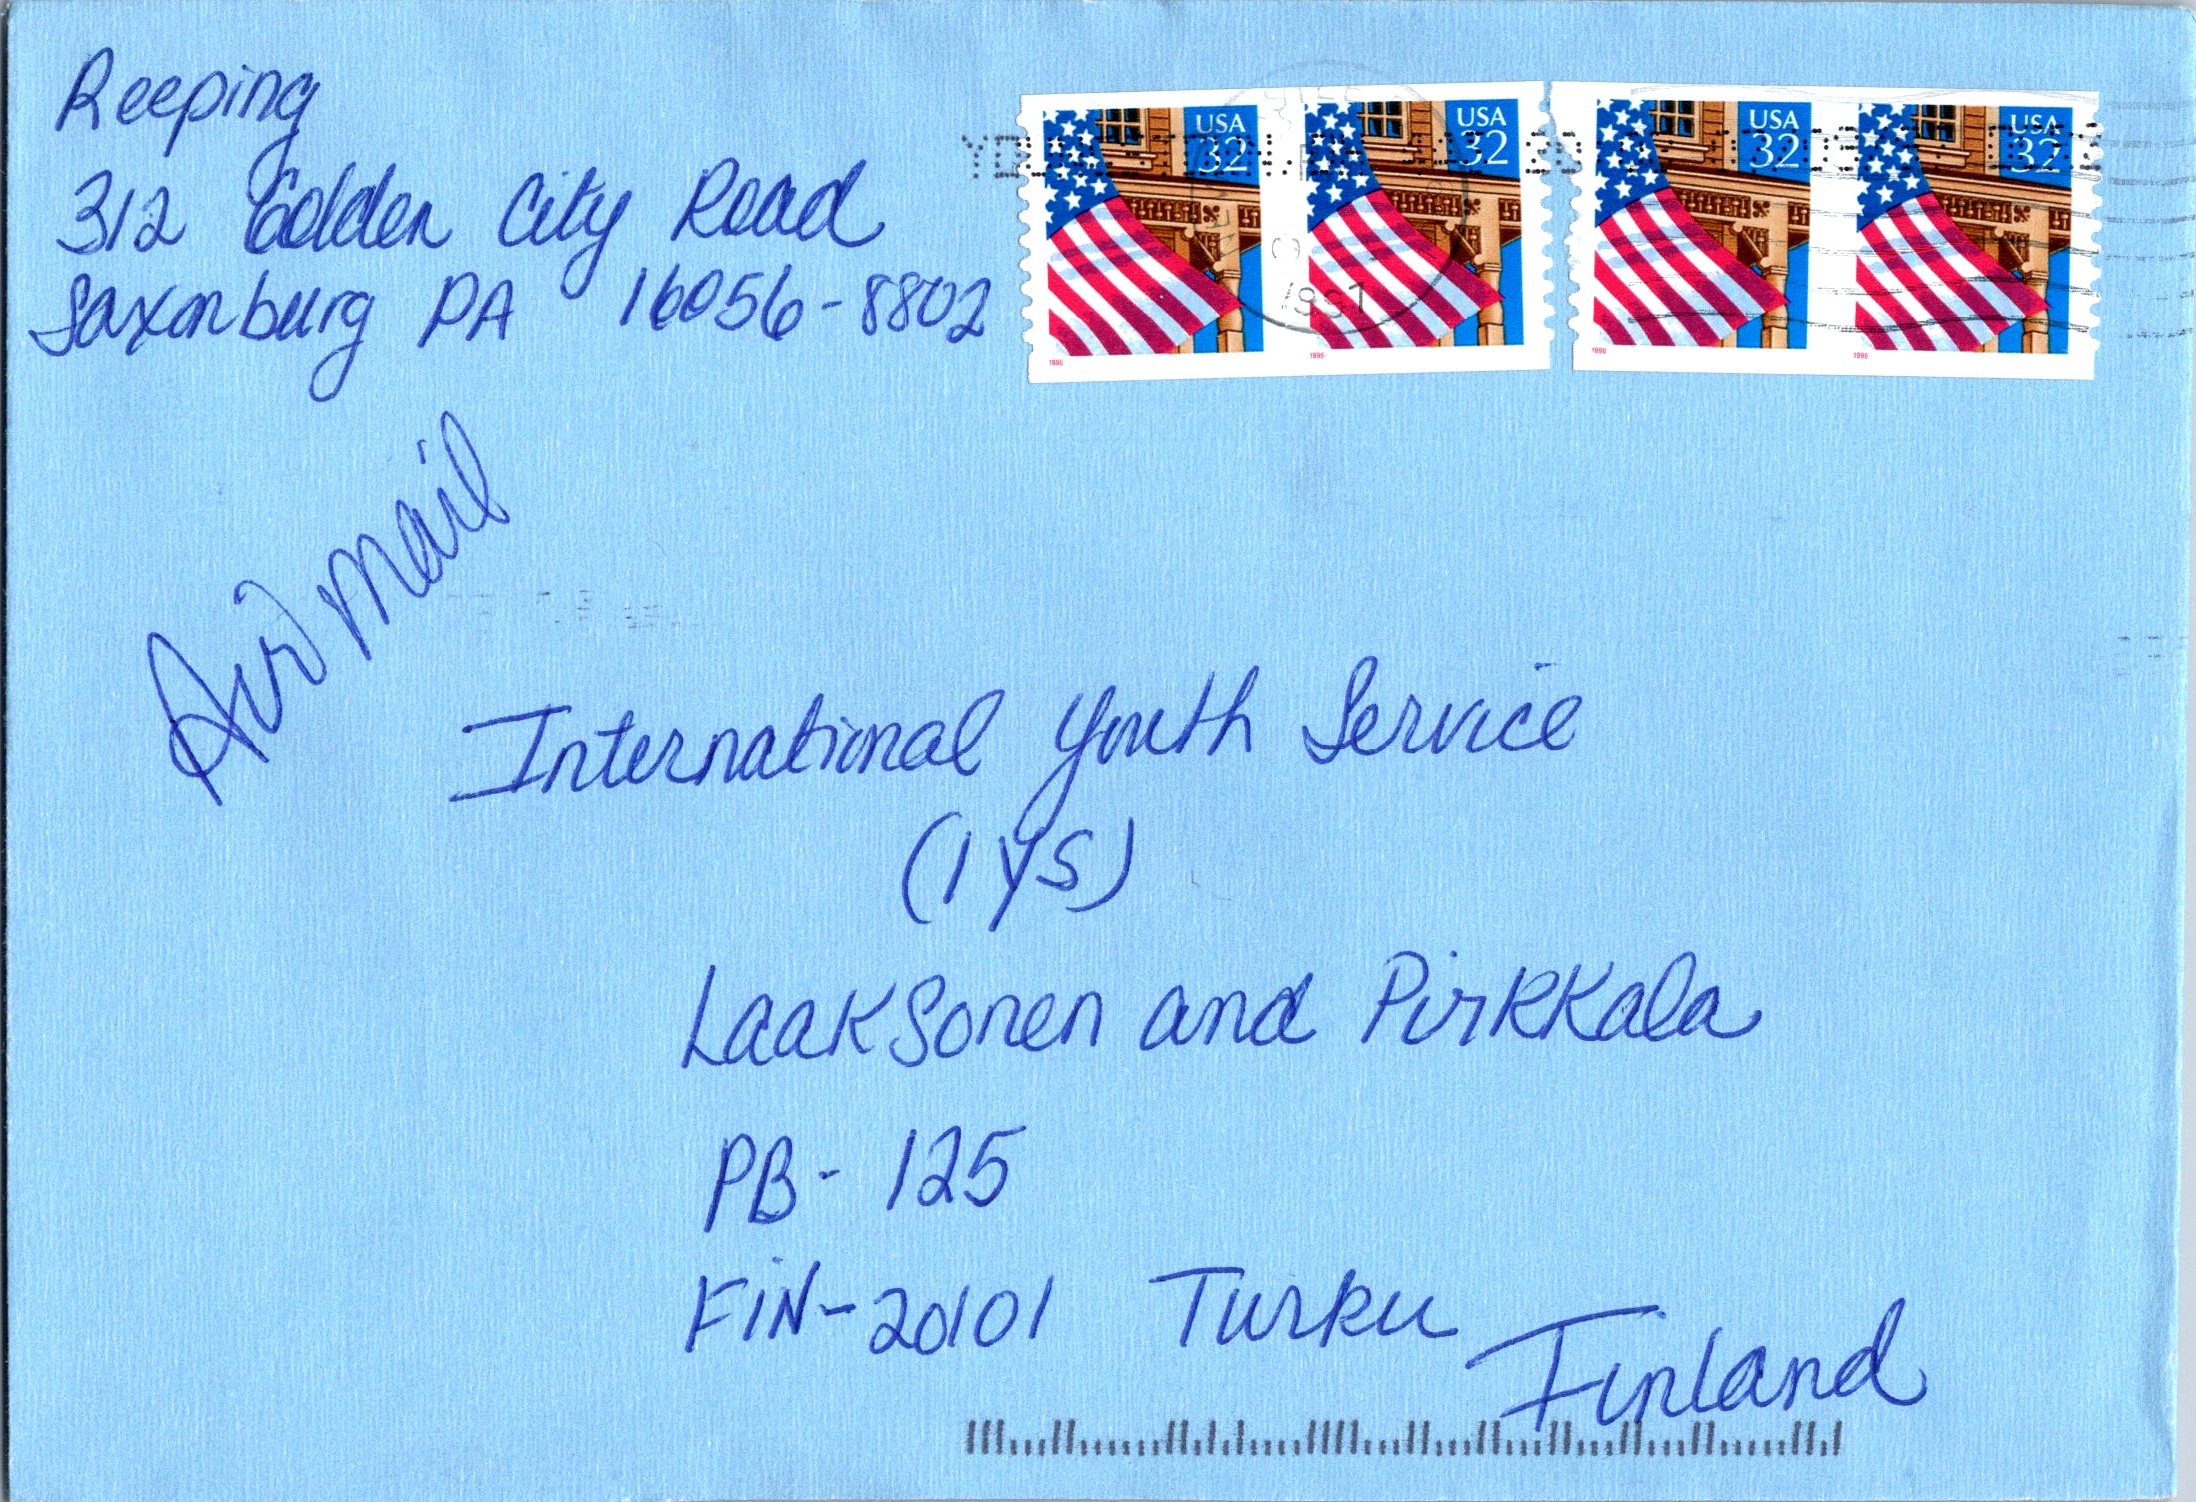 Reeping
312 Golden City Road
Saxonburg PA 16056-8802
USA
32
USA
32
USA
32
USA
32
1997
1996
1996
1996
1996
Air mail
International Youth Service
(IYS)
Laaksonen and Pirkkala
PB- 125
FIN-20101 Turku
Finland